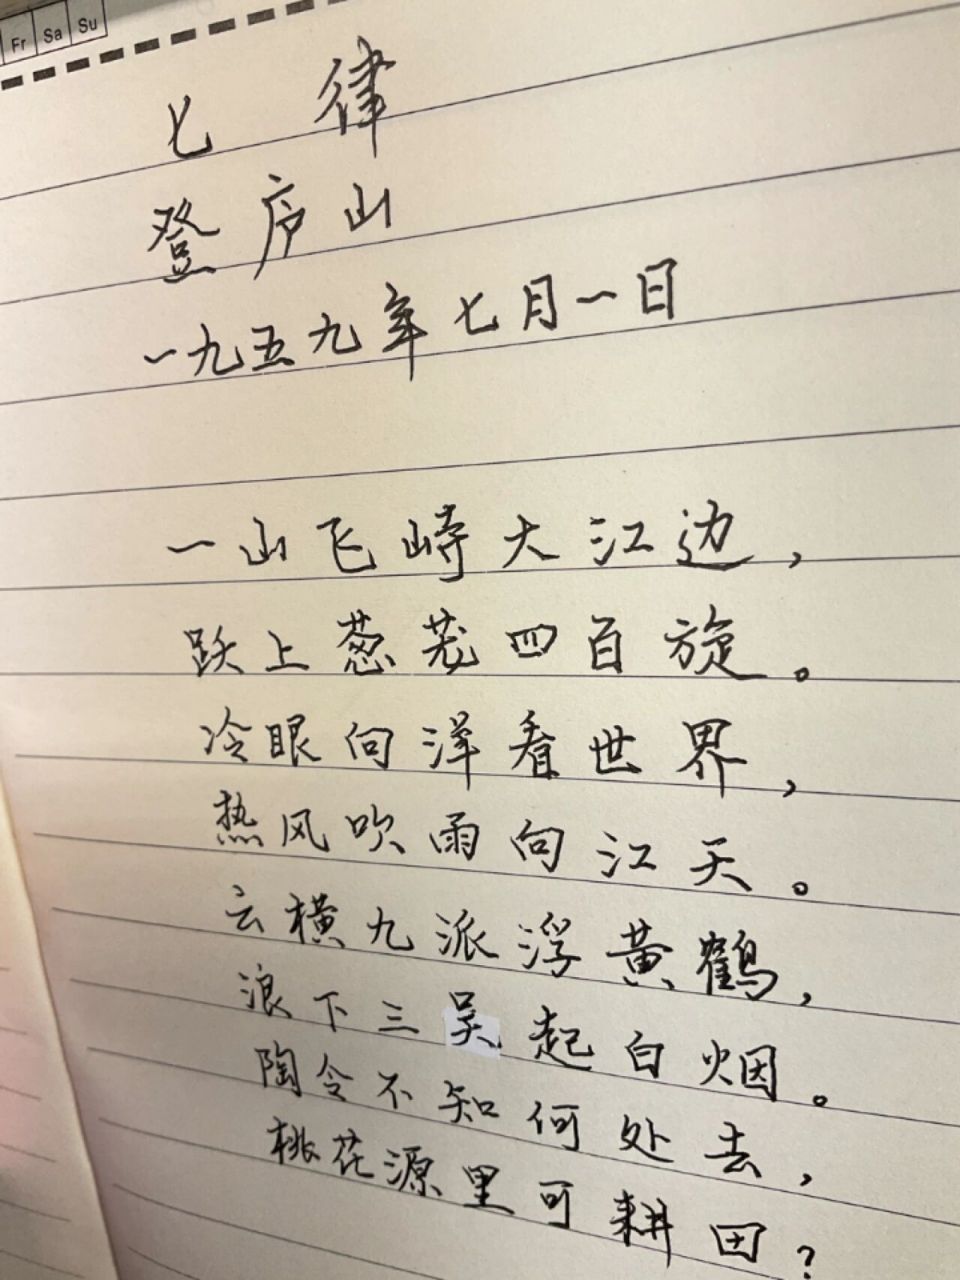 Fr Sa Su
七律
登庐山
一九五九年七月一日
一山飞峙大江边，
跃上葱茏四百旋。
冷眼向洋看世界，
热风吹雨向江天。
云横九派浮黄鹤，
浪下三吴起白烟。
陶令不知何处去，
桃花源里可耕田？